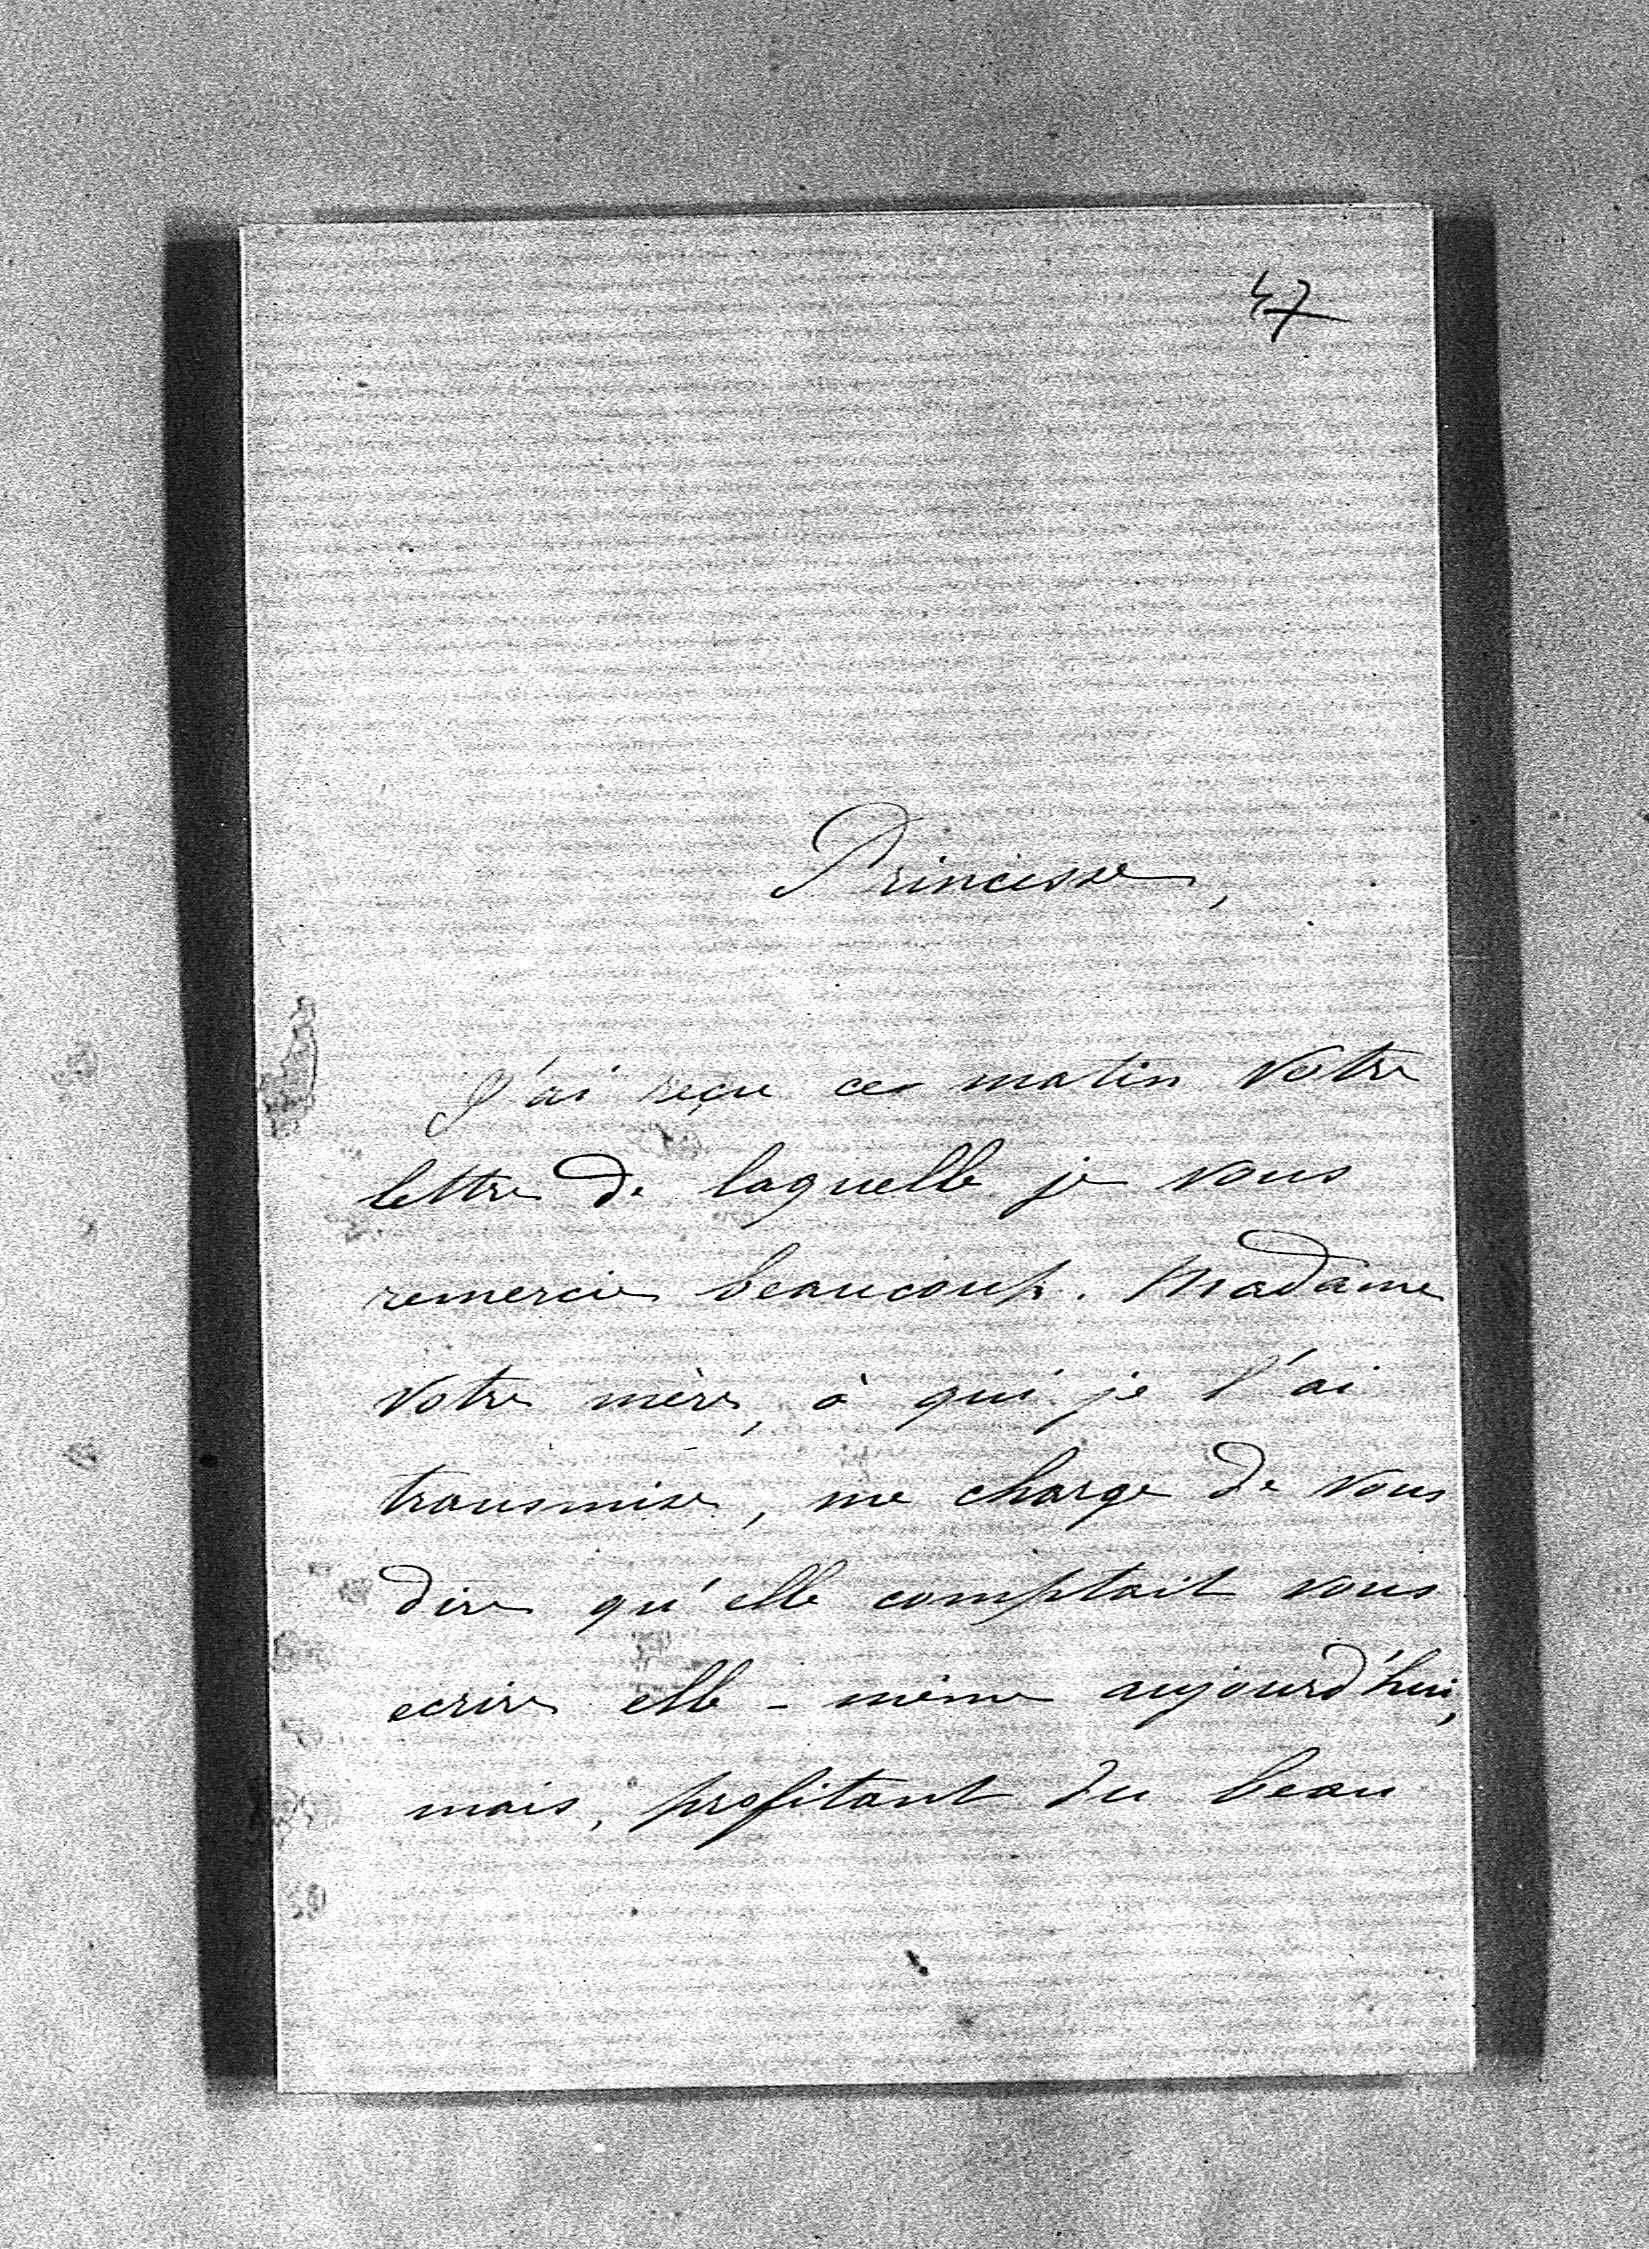 47
Princesse,
J'ai reçu ce matin votre
lettre de laquelle je vous
remercie beaucoup. Madame
votre mère, à qui je l'ai
transmise, me charge de vous
dire qu'elle comptait vous
ecrire elle-même aujourd'hui,
mais, profitant du beau